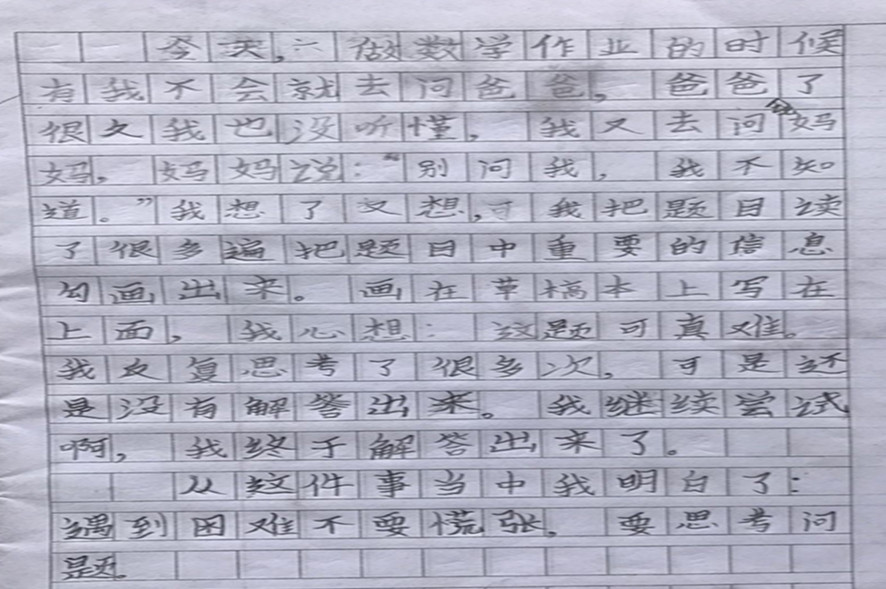 今天,六做数学作业的时候
有我不会就去问爸爸,爸爸了
很久我也没听懂,我又去问妈
妈,妈妈说:“别问我,我不知
道。”我想了又想,我把题目读
了很多遍把题目中重要的信息
勾画出来。画在草稿本上写在
上面,我心想:这题可真难。
我反复思考了很多次,可是还
是没有解答出来。我继续尝试
啊,我终于解答出来了。
从这件事当中我明白了:
遇到困难不要慌张,要思考问
题。